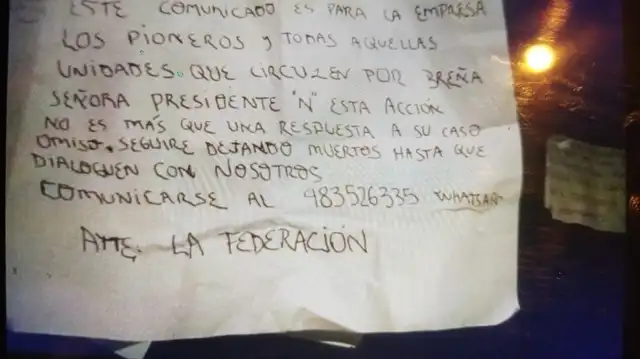 ESTE COMUNICADO ES PARA LA EMPRESA
LOS PIONEROS Y TODAS AQUELLAS
UNIDADES. QUE CIRCULEN POR BREÑA
SEÑORA PRESIDENTE "N" ESTA ACCIÓN
NO ES MÁS QUE UNA RESPUESTA A SU CASO
OMISO. SEGUIRE DEJANDO MUERTOS HASTA QUE
DIALOGUEN CON NOSOTROS
COMUNICARSE AL 983526335 WHATSAP
ATTE. LA FEDERACIÓN